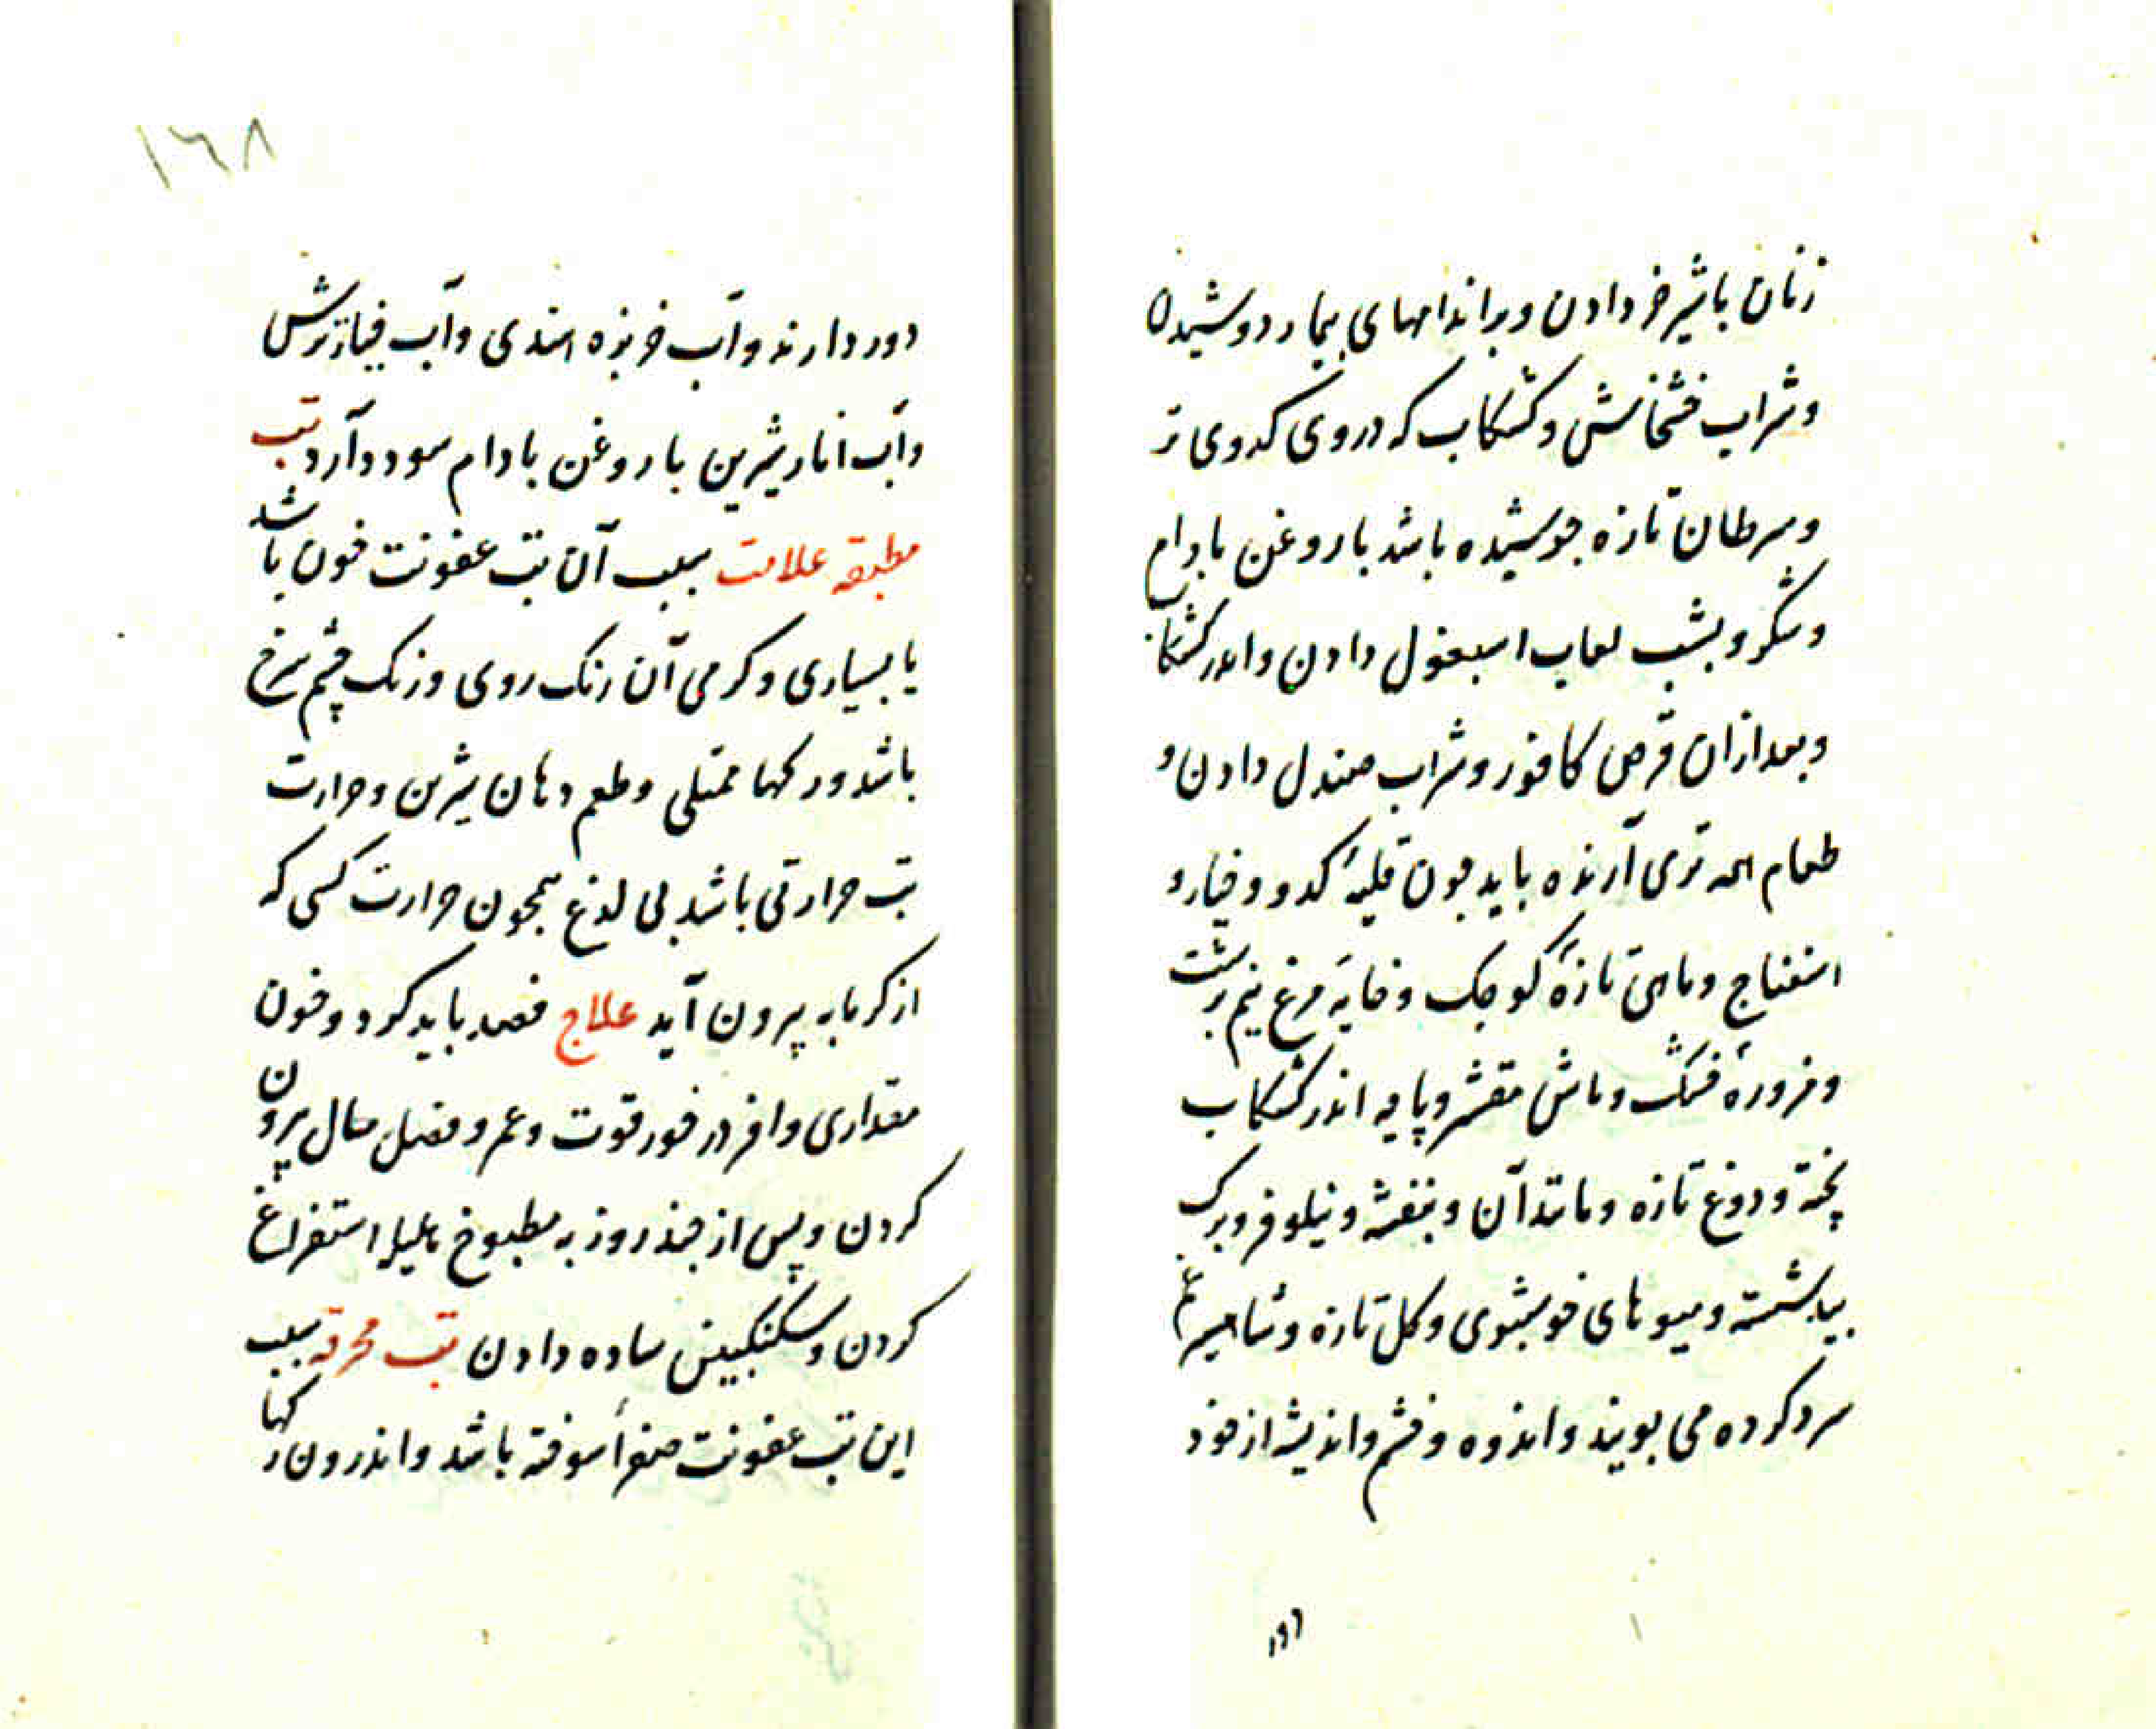 زنان یا شیر خر دادن و بر اندامهای بیمار دوشیدن
و شراب خشخاش و کشکاب که در وی کدوی تر
و سرطان تازه جوشیده باشد با روغن بادام
و شکر و بشب لعاب اسبغول دادن و اندر کشکاب
و بعد ازان قرص کافور و شراب صندل دادن و
طعام همه تری آرنده باید چون قلیهٔ کدو و خیار و
اسفناج و ماهی تازهٔ کوچک و خایهٔ مرغ نیم برشت
و مزورهٔ خشک و ماش مقشر و پاچه اندر کشکاب
پخته و دوغ تازه و مانند آن و بنفشه و نیلوفر و برک
بید شسته و میوهای خوشبوی و کل تازه و شاهسپرغم
سرد کرده می بویند و اندوه و خشم و اندیشه از خود
۱۶۸
دور دارند و آب خربزه هندی و آب خیار ترش
و آب انار شیرین با روغن بادام سود دارد تب
مطبقه علامت سبب آن تب عفونت خون باشد
یا بسیاری و کرمی آن رنک روی و رنک چشم سرخ
باشد و رکها ممتلی و طعم دهان شیرین و حرارت
تب حرارتی باشد بی لذع همچون حرارت کسی که
از کرمابه بیرون آید علاج فصد باید کرد و خون
مقداری وافر در خور قوت و عمر و فصل سال بیرون
کردن و پس از چند روز به مطبوخ هلیله استفراغ
کردن و سکنکبین ساده دادن تب محرقه سبب
این تب عفونت صفرا سوخته باشد و اندرون رکها